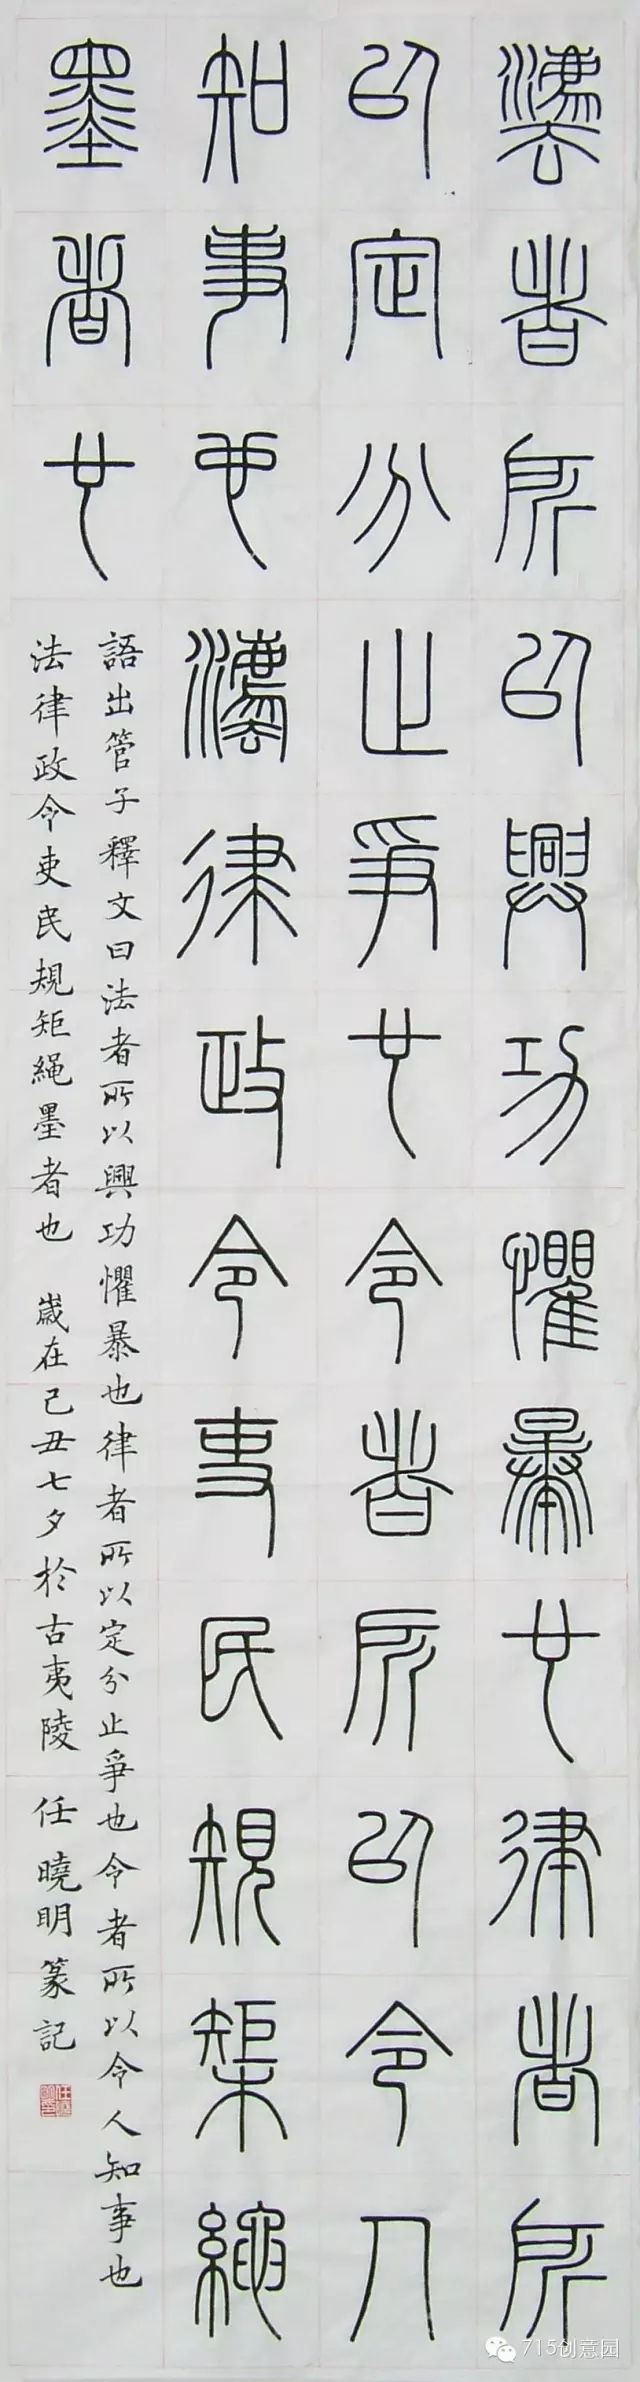 灋者所以興功懼暴也律者所
以定分止爭也令者所以令人
知事也灋律政令吏民規榘繩
墨者也
語出管子釋文曰法者所以興功懼暴也律者所以定分止爭也令者所以令人知事也
法律政令吏民規矩繩墨者也 歲在己丑七夕於古夷陵 任曉明篆記
715创意园